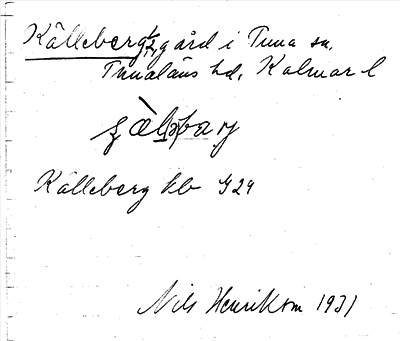 Källeberg 1/2 gård i Tuna sn,
Tunaläns hd, Kalmar l
Källeberg kb G 29
Nils Henriksson 1931